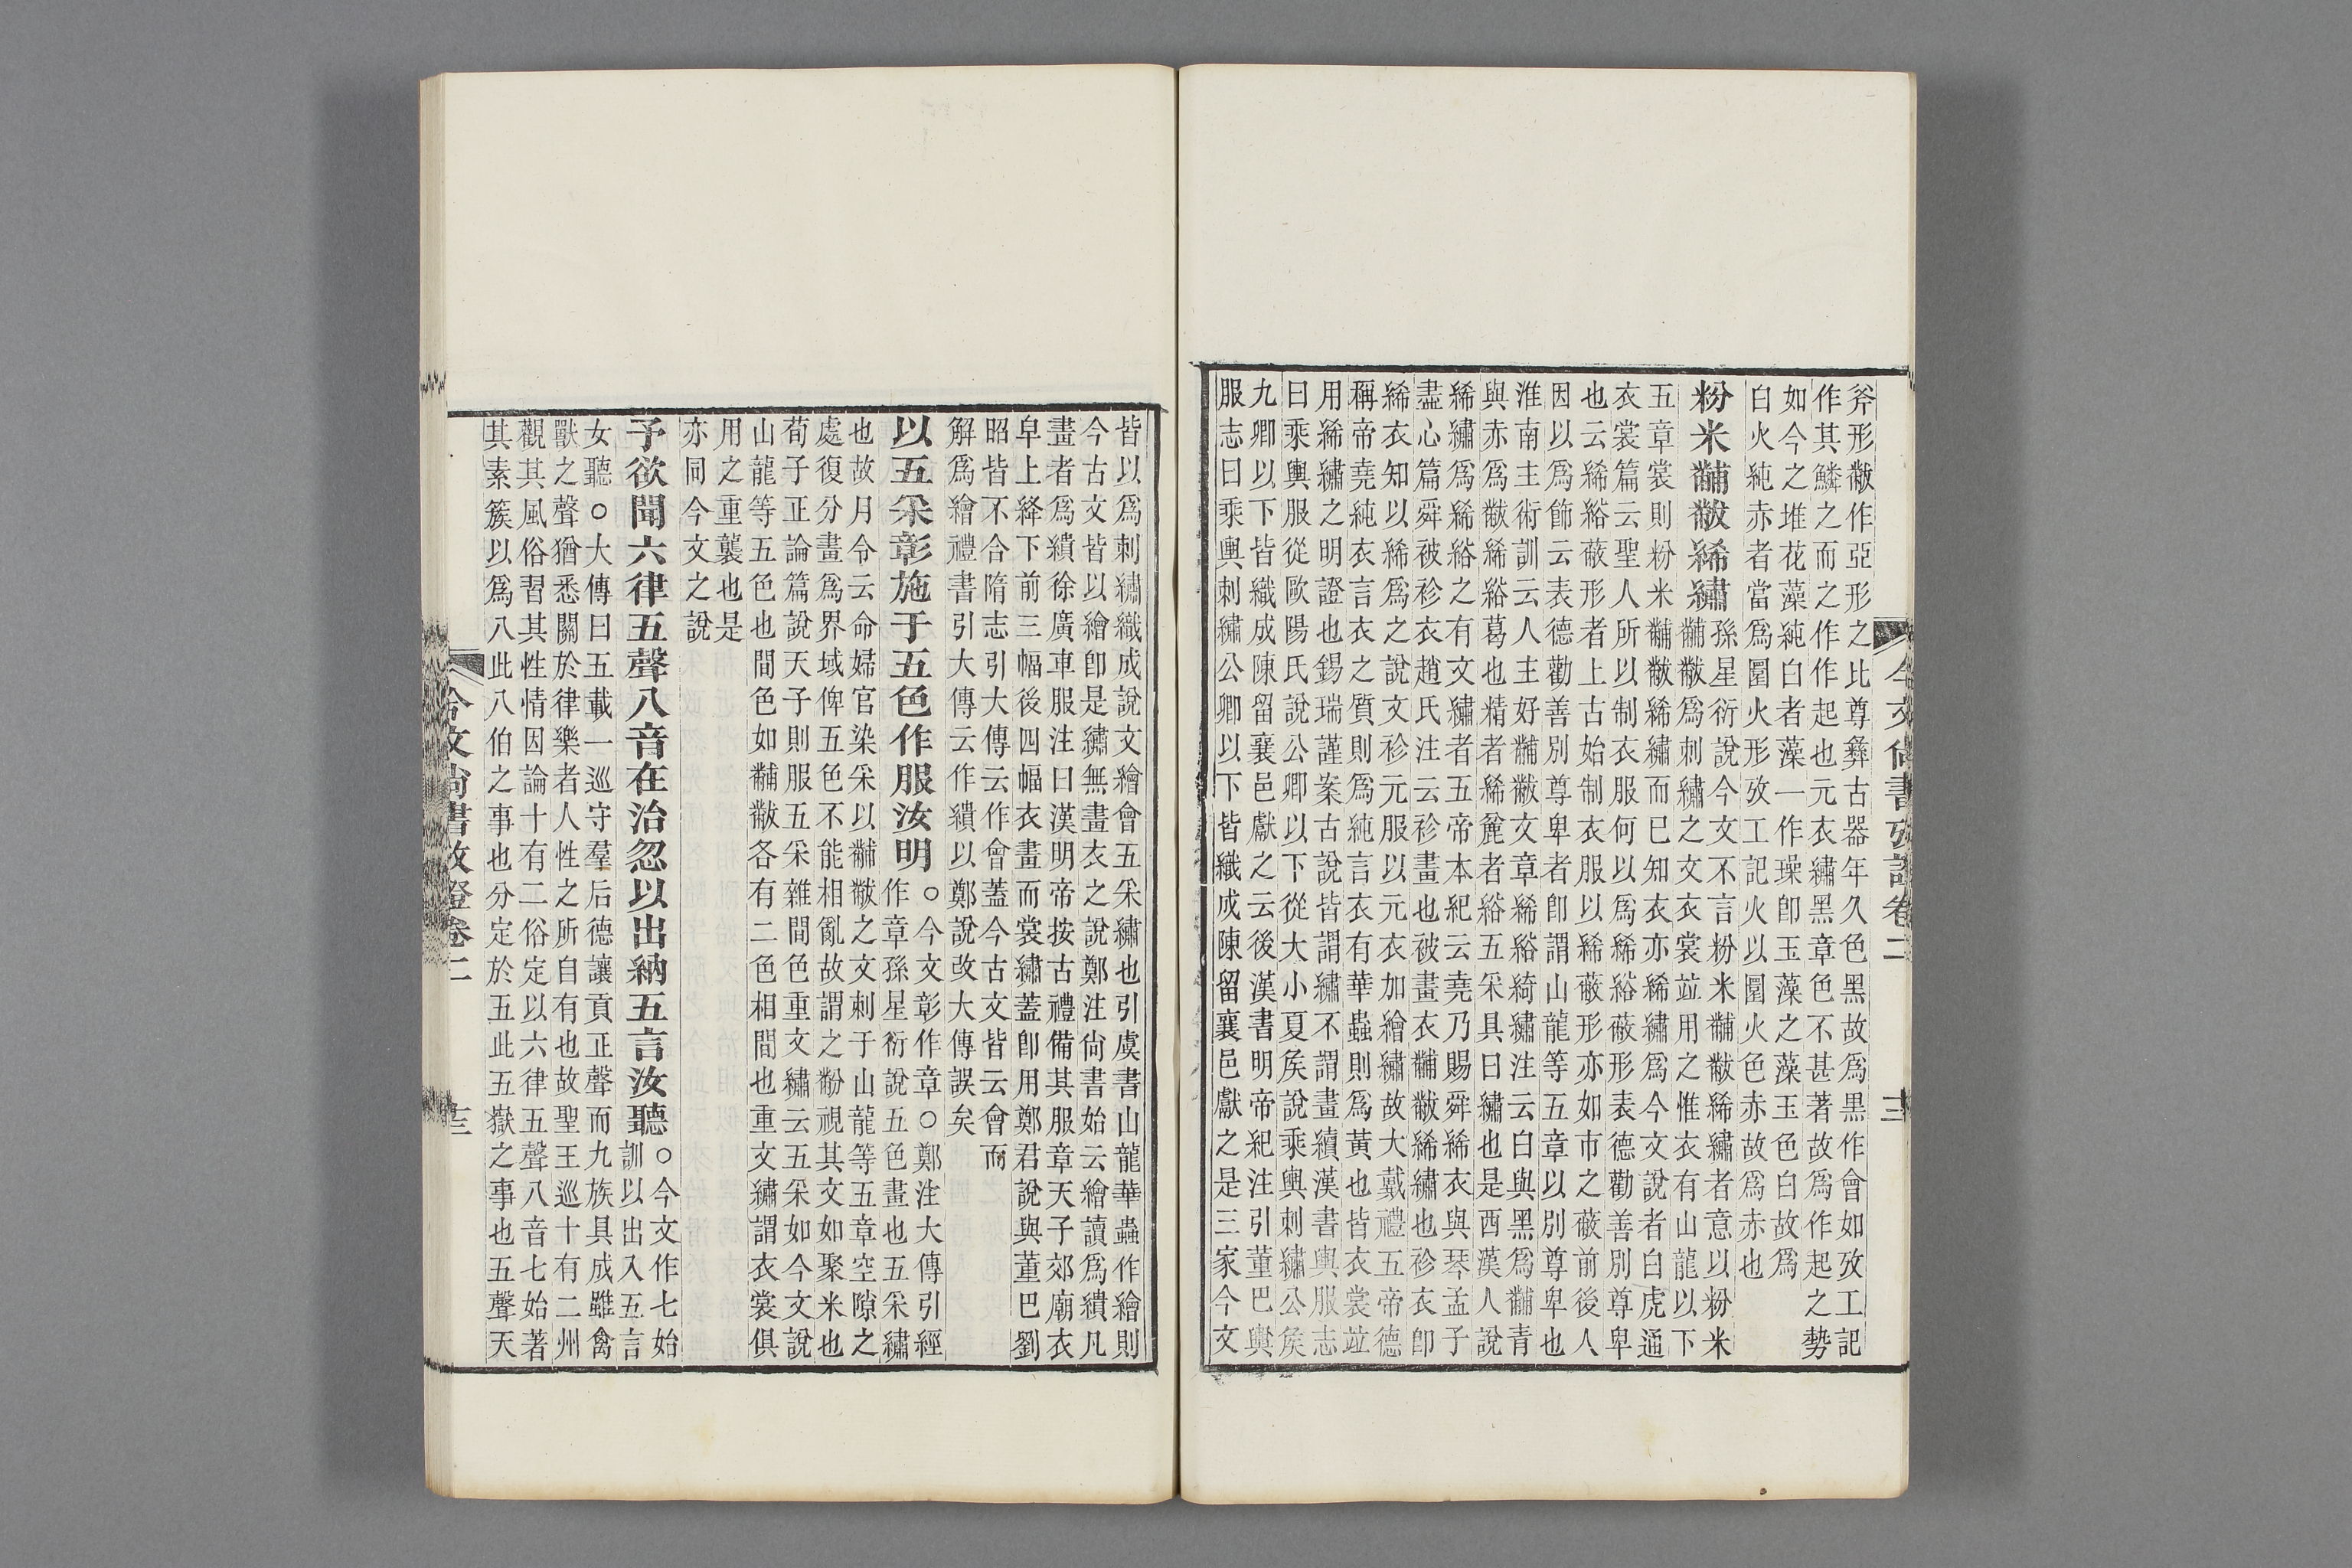 斧形黻作亞形之比尊彝古器年久色黑故爲黑作會如攷工記
作其鱗之而之作作起也元衣繡黑章色不甚著故爲作起之勢
如今之堆花藻純白者藻一作璪卽玉藻之藻玉色白故爲
白火純赤者當爲圜火形攷工記火以圜火色赤故爲赤也
粉米黼黻絺繡孫星衍說今文不言粉米黼黻絺繡者意以粉米
黼黻爲刺繡之文衣裳竝用之惟衣有山龍以下
五章裳則粉米黼黻絺繡而已知衣亦絺繡爲今文說者白虎通
衣裳篇云聖人所以制衣服何以爲絺綌蔽形表德勸善別尊卑
也云絺綌蔽形者上古始制衣服以絺蔽形亦如市之蔽前後人
因以爲飾云表德勸善別尊卑者卽謂山龍等五章以別尊卑也
淮南主術訓云人主好黼黻文章絺綌綺繡注云白與黑爲黼青
與赤爲黻絺綌葛也精者絺麤者綌五采具曰繡也是西漢人說
絺繡爲絺綌之有文繡者五帝本紀云堯乃賜舜絺衣與琴孟子
盡心篇舜被袗衣趙氏注云袗畫也被畫衣黼黻絺繡也袗衣卽
絺衣知以絺爲之說文袗元服以元衣加繪繡故大戴禮五帝德
稱帝堯純衣言衣之質則爲純言衣有華蟲則爲黃也皆衣裳竝
用絺繡之明證也錫瑞謹案古說皆謂繡不謂畫繢漢書輿服志
曰乘輿服從歐陽氏說公卿以下從大小夏矦說乘輿刺繡公矦
九卿以下皆織成陳留襄邑獻之云後漢書明帝紀注引董巴輿
服志曰乘輿刺繡公卿以下皆織成陳留襄邑獻之是三家今文
今文尚書攷證卷二
十二
皆以爲刺繡織成說文繪會五采繡也引虞書山龍華蟲作繪則
今古文皆以繪卽是繡無畫衣之說鄭注尙書始云繪讀爲繢凡
畫者爲繢徐廣車服注曰漢明帝按古禮備其服章天子郊廟衣
皁上絳下前三幅後四幅衣畫而裳繡蓋卽用鄭君說與董巴劉
昭皆不合隋志引大傳云作會蓋今古文皆云會而
解爲繪禮書引大傳云作繢以鄭說改大傳誤矣
以五采彰施于五色作服汝明○今文彰作章○鄭注大傳引經
作章孫星衍說五色畫也五采繡
也故月令云命婦官染采以黼黻之文刺于山龍等五章空隙之
處復分畫爲界域俾五色不能相亂故謂之黺視其文如聚米也
荀子正論篇說天子則服五采雜間色重文繡云五采如今文說
山龍等五色也間色如黼黻各有二色相間也重文繡謂衣裳俱
用之重襲也是
亦同今文之說
予欲聞六律五聲八音在治忽以出納五言汝聽○今文作七始
訓以出入五言
女聽○大傳曰五載一巡守羣后德讓貢正聲而九族具成雖禽
獸之聲猶悉關於律樂者人性之所自有也故聖王巡十有二州
觀其風俗習其性情因論十有二俗定以六律五聲八音七始著
其素簇以爲八此八伯之事也分定於五此五嶽之事也五聲天
今文尚書攷證卷二
十三